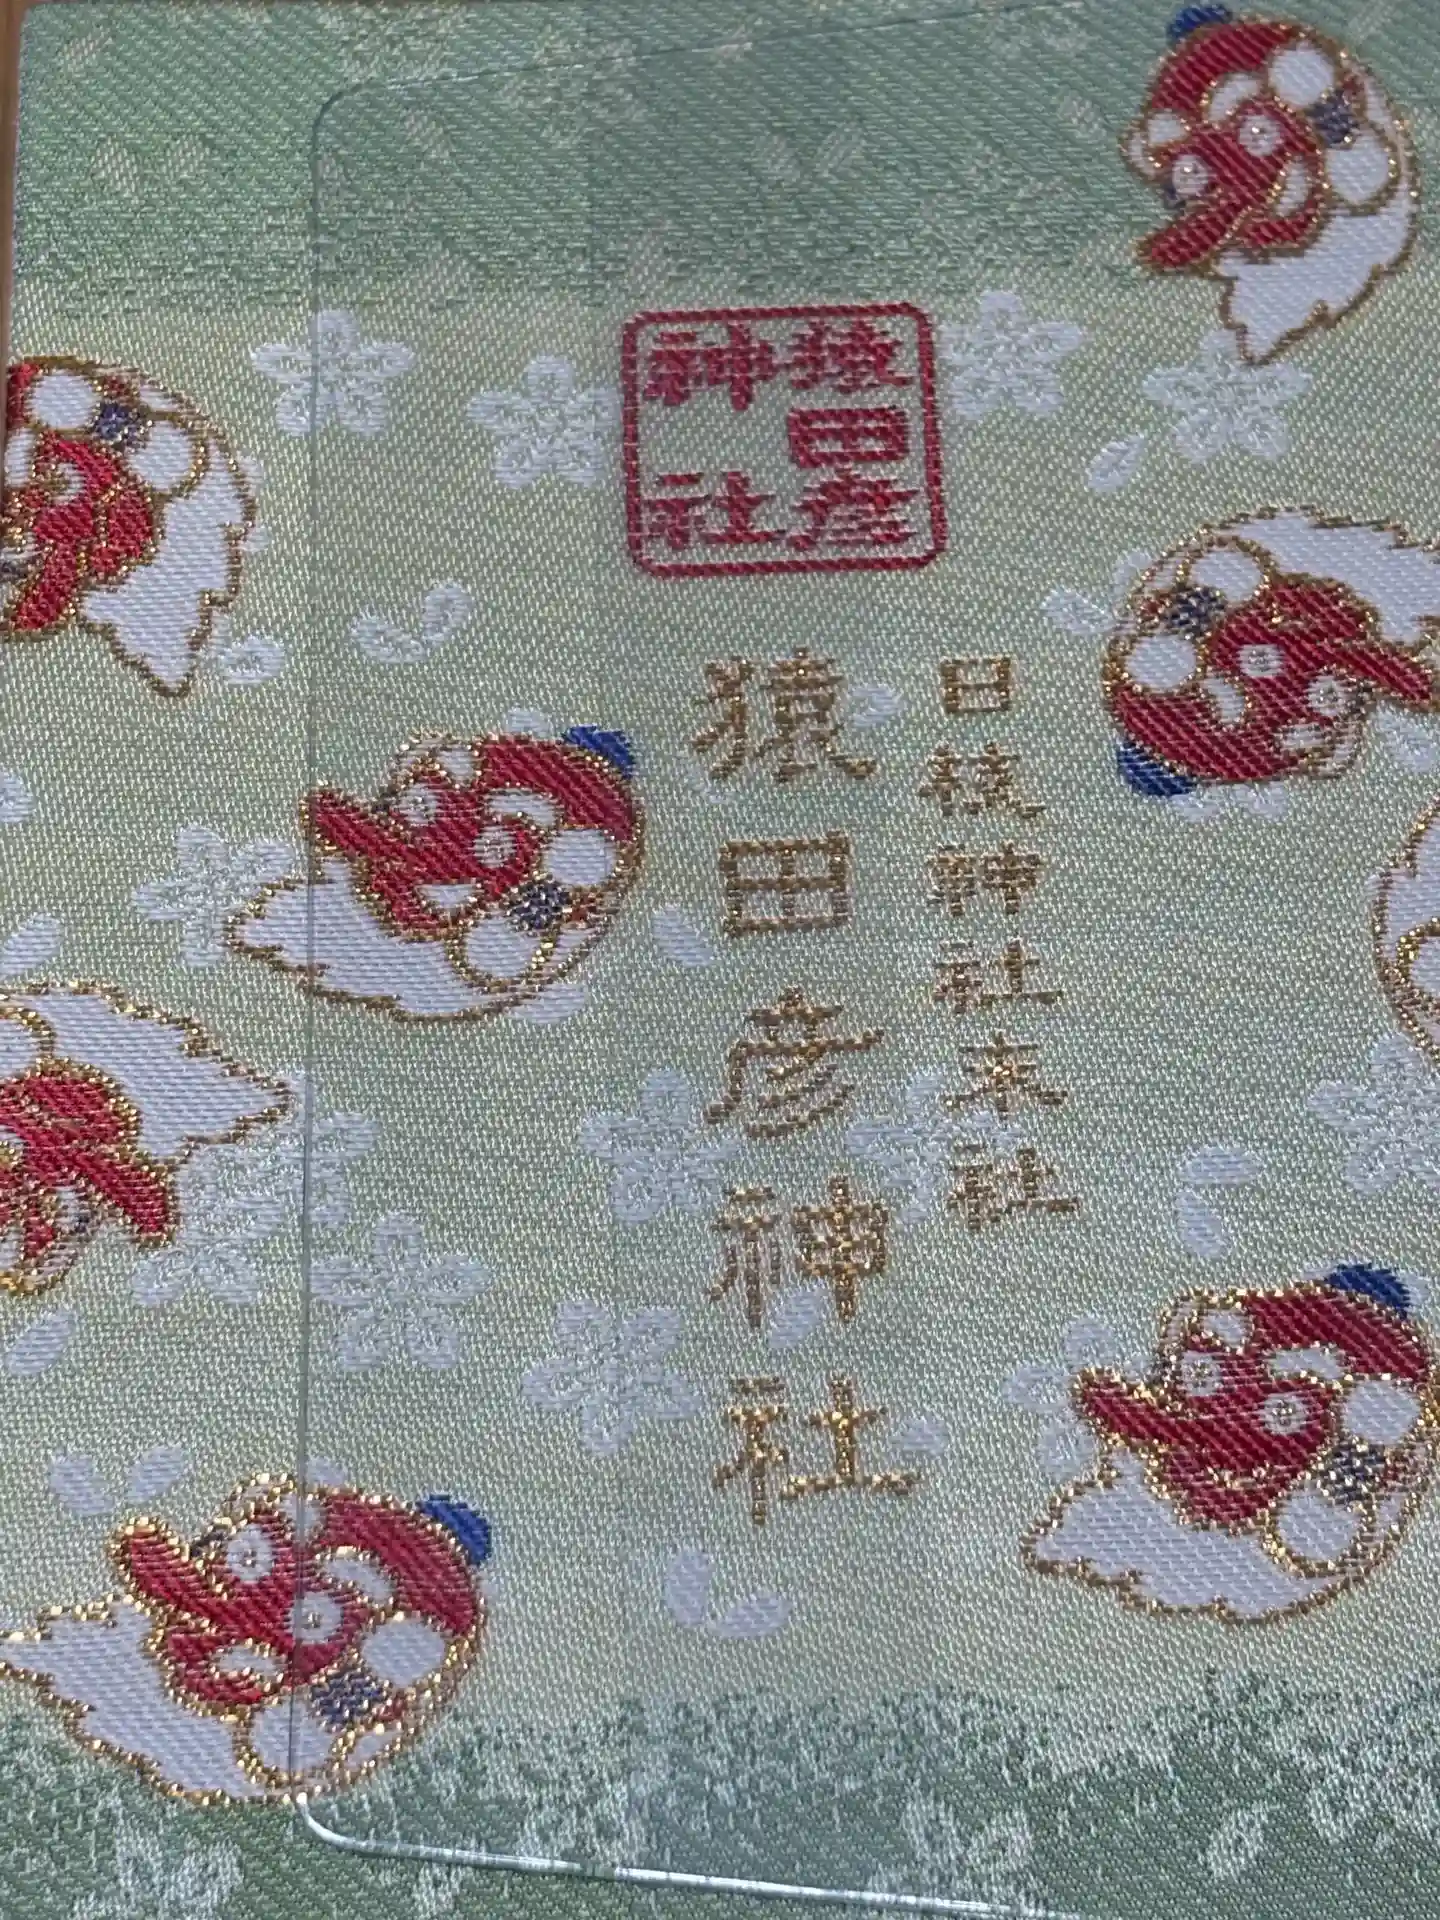 猿田彦
神社
日枝神社末社
猿田彦神社